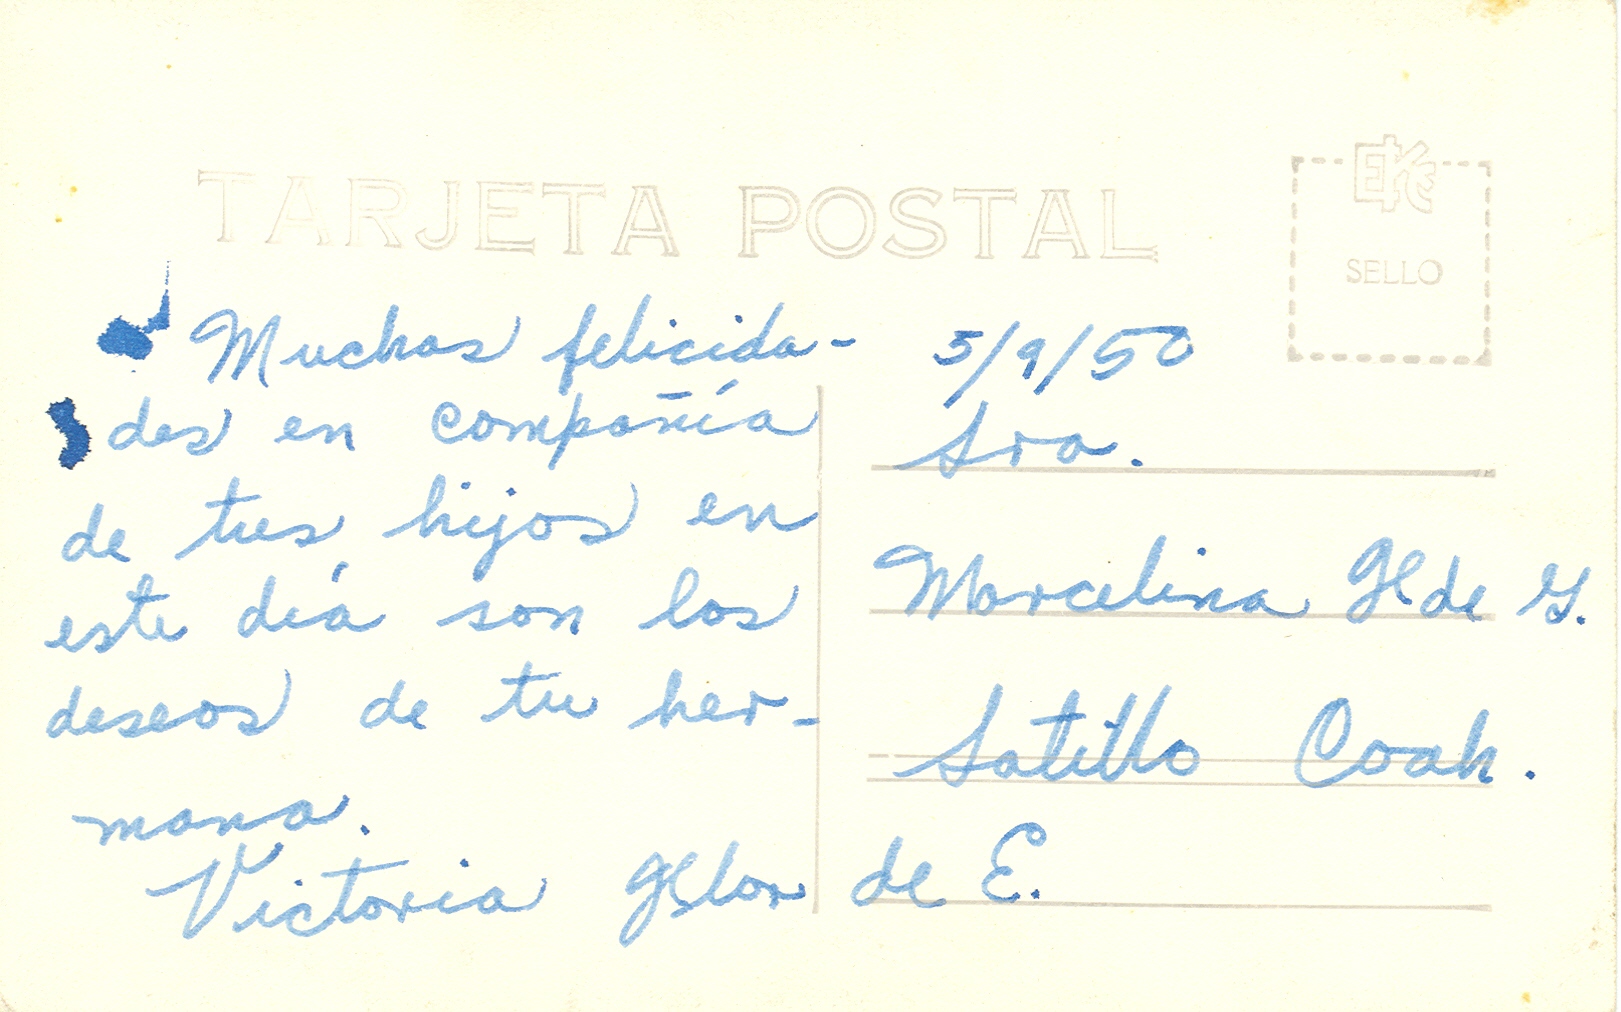 TARJETA POSTAL
EKC
SELLO
Muchas felicida-
des en compañía
de tus hijos en
este día son los
deseos de tu her-
mana.
Victoria de E.
5/9/50
Sra.
Marcelina de G.
Satillo Coah.